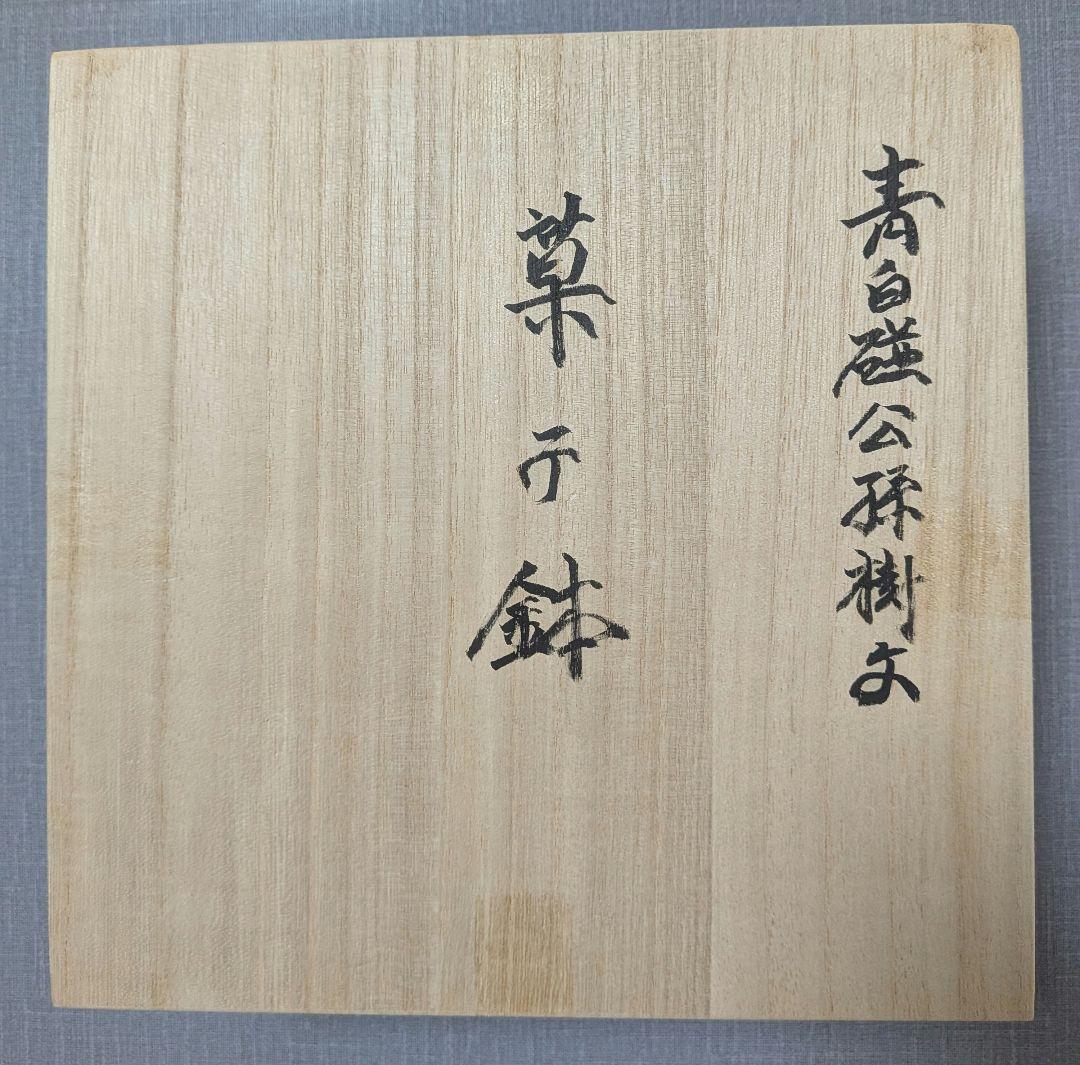 青白磁公孫樹文
菓子鉢